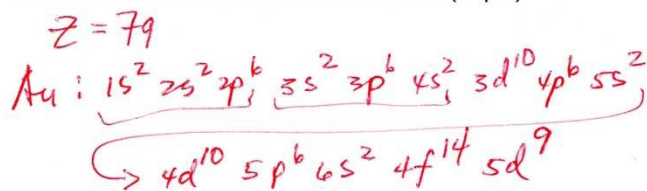 Z = 79
Au : 1s² 2s² 2p⁶ 3s² 3p⁶ 4s² 3d¹⁰ 4p⁶ 5s²
→ 4d¹⁰ 5p⁶ 6s² 4f¹⁴ 5d⁹